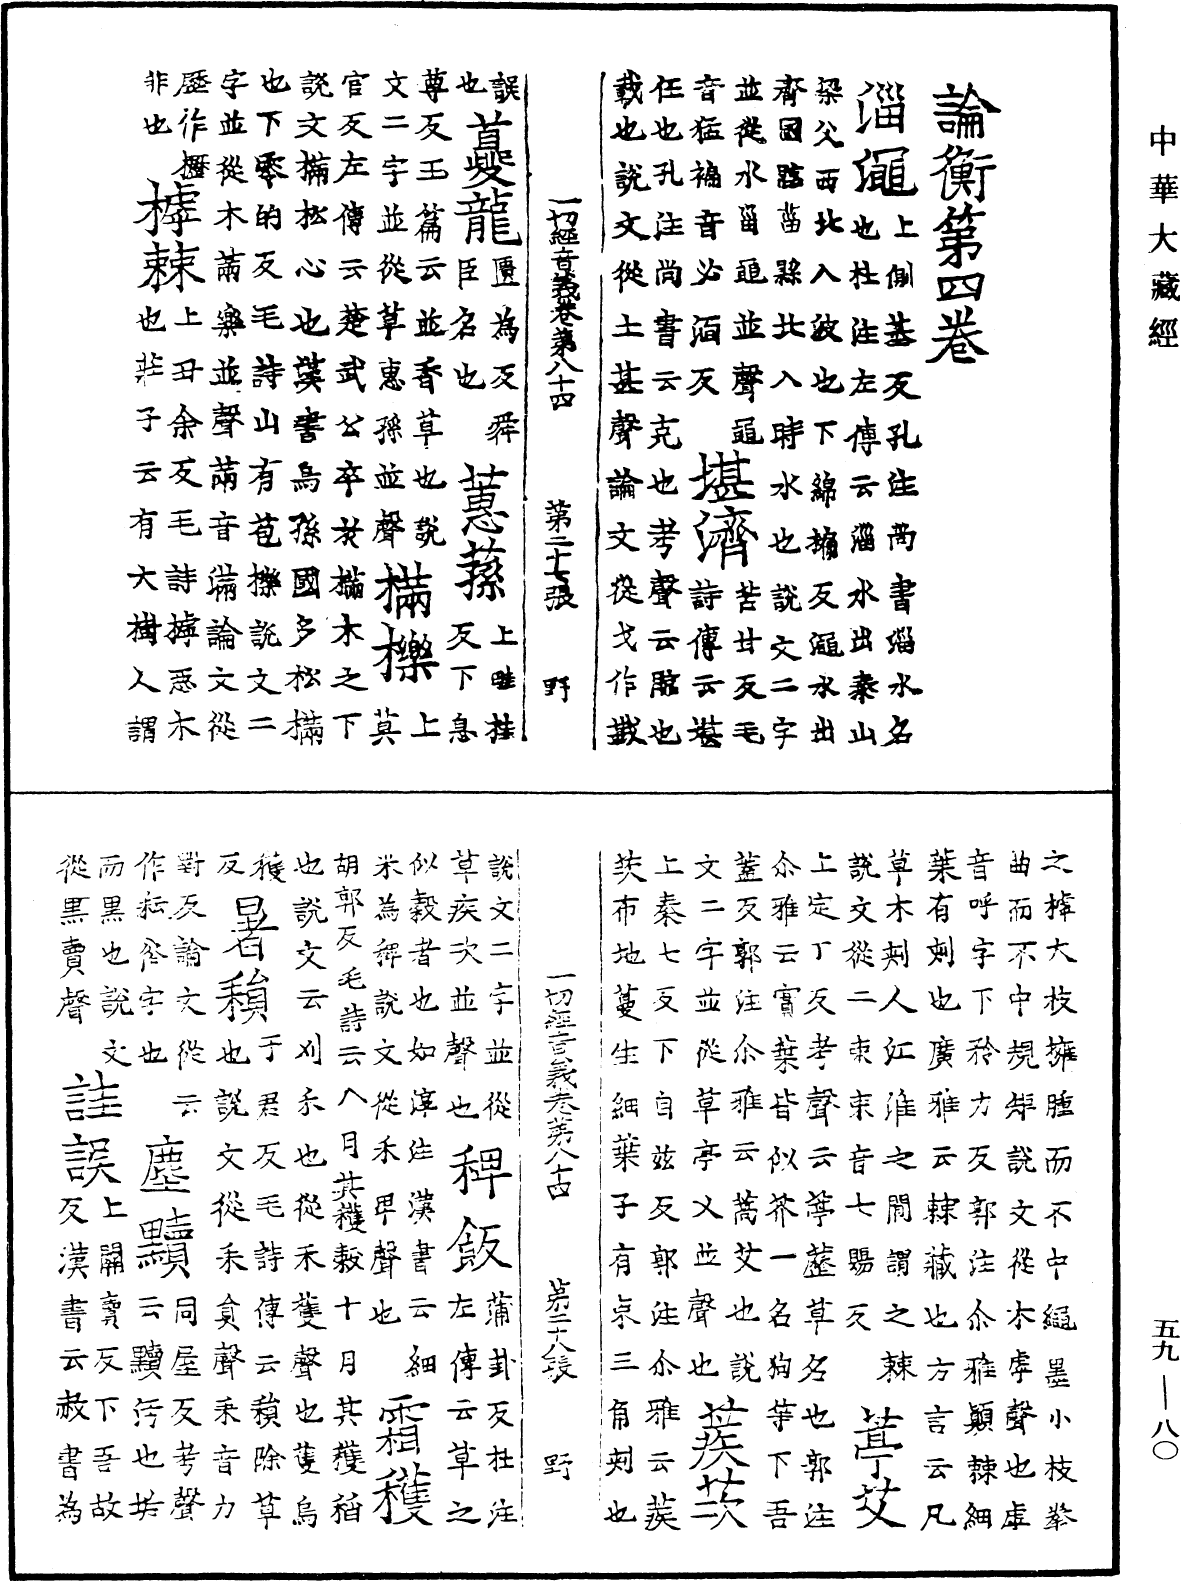 中華大藏經
論衡第四卷
淄澠 上側基反孔注尚書淄水名
也杜注左傳云淄水出泰山
梁父西北入汶也下綿褊反澠水出
齊國臨菑縣北入時水也說文二字
並從水甾黽並聲黽
音猛褊音必湎反
堪濟 苦甘反毛
詩傳云堪
任也孔注尚書云克也考聲云勝也
載也說文從土甚聲論文從戈作戡
一切經音義卷第八十四 第二十七張 野
誤
也
夔龍 匱為反舜
臣名也
蕙蓀 上畦桂
反下息
尊反玉篇云並香草也說
文二字並從草惠孫並聲
樠櫟 上
莫
官反左傳云楚武公卒於樠木之下
說文樠松心也漢書烏孫國多松樠
也下零的反毛詩山有苞櫟說文二
字並從木㒼樂並聲㒼音滿論文從
歷作櫪
非也
樗棘 上丑余反毛詩樗惡木
也莊子云有大樹人謂
之樗大枝擁腫而不中繩墨小枝拳
曲而不中規矩說文從木雩聲也虛
音呼字下矜力反郭注尒雅顆棘細
葉有刺也廣雅云棘藏也方言云凡
草木刾人江淮之間謂之棘
說文從二朿朿音七賜反
葶艾
上定丁反考聲云葶藶草名也郭注
尒雅云實葉皆似芥一名狗薺下吾
蓋反郭注尒雅云蒿艾也說
文二字並從草亭乂並聲也
蒺茨
上秦七反下自玆反郭注尒雅云蒺
茨布地蔓生細葉子有朿三角刾也
一切經音義卷第八十四 第二十八張 野
說文二字並從
草疾次並聲也
稗飯 蒲卦反杜注
左傳云草之
似穀者也如淳注漢書云細
米為稗說文從禾卑聲也
霜穫
胡郭反毛詩云八月其穫穀十月其穫稻
也說文云刈禾也從禾蒦聲也蒦烏
穫
反
暑䅰 于君反毛詩傳云䅰除草
也說文從耒員聲耒音力
對反論文從云
作耘俗字也
塵黷 同屋反考聲
云黷污也垢
而黑也說文
從黒賣聲
詿誤 上關賣反下吾故
反漢書云赦書為
五九—八〇